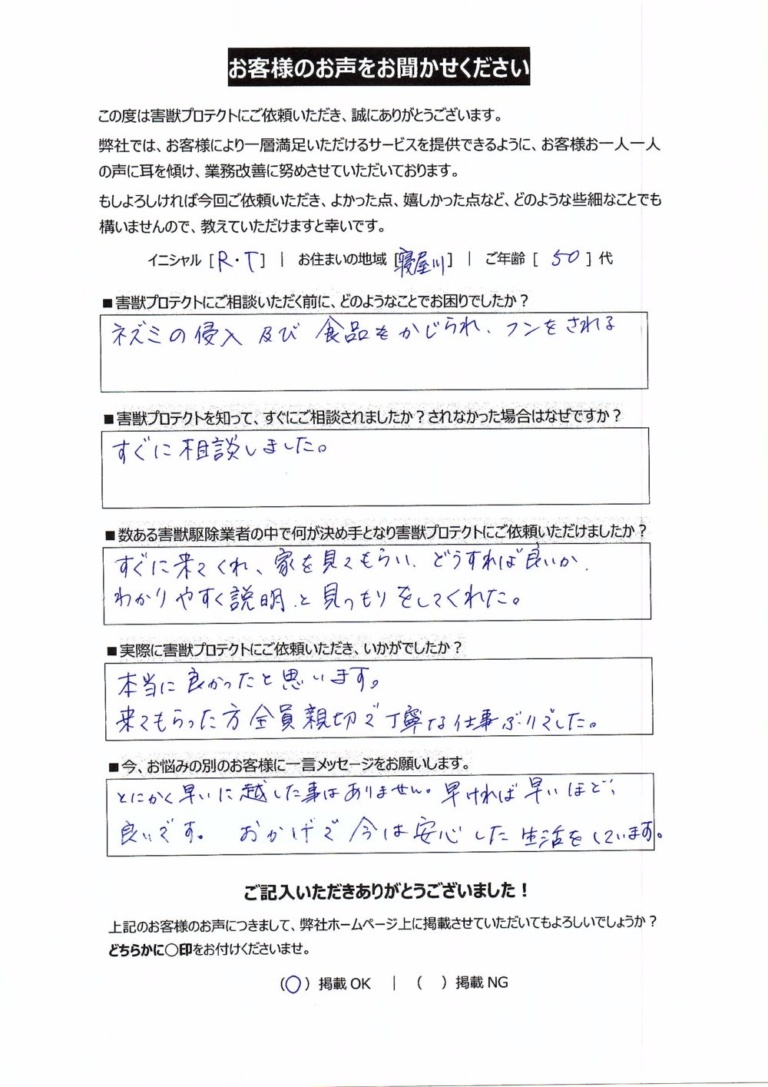 お客様のお声をお聞かせください
この度は害獣プロテクトにご依頼いただき、誠にありがとうございます。
弊社では、お客様により一層満足いただけるサービスを提供できるように、お客様お一人一人
の声に耳を傾け、業務改善に努めさせていただいております。
もしよろしければ今回ご依頼いただき、よかった点、嬉しかった点など、どのような些細なことでも
構いませんので、教えていただけますと幸いです。
イニシャル [ R・T ] | お住まいの地域 [寝屋川] | ご年齢 [ 50 ] 代
■害獣プロテクトにご相談いただく前に、どのようなことでお困りでしたか？
ネズミの侵入 及び 食品をかじられ、フンをされる
■害獣プロテクトを知って、すぐにご相談されましたか？されなかった場合はなぜですか？
すぐに相談しました。
■数ある害獣駆除業者の中で何が決め手となり害獣プロテクトにご依頼いただけましたか？
すぐに来てくれ、家を見てもらい、どうすれば良いか、
わかりやすく説明、と見つもりをしてくれた。
■実際に害獣プロテクトにご依頼いただき、いかがでしたか？
本当に良かったと思います。
来てもらった方全員親切で丁寧な仕事ぶりでした。
■今、お悩みの別のお客様に一言メッセージをお願いします。
とにかく早いに越した事はありません。早ければ早いほど、
良いです。 おかげで今は安心した生活をしています。
ご記入いただきありがとうございました！
上記のお客様のお声につきまして、弊社ホームページ上に掲載させていただいてもよろしいでしょうか？
どちらかに〇印をお付けくださいませ。
（〇）掲載 OK | （ ）掲載 NG